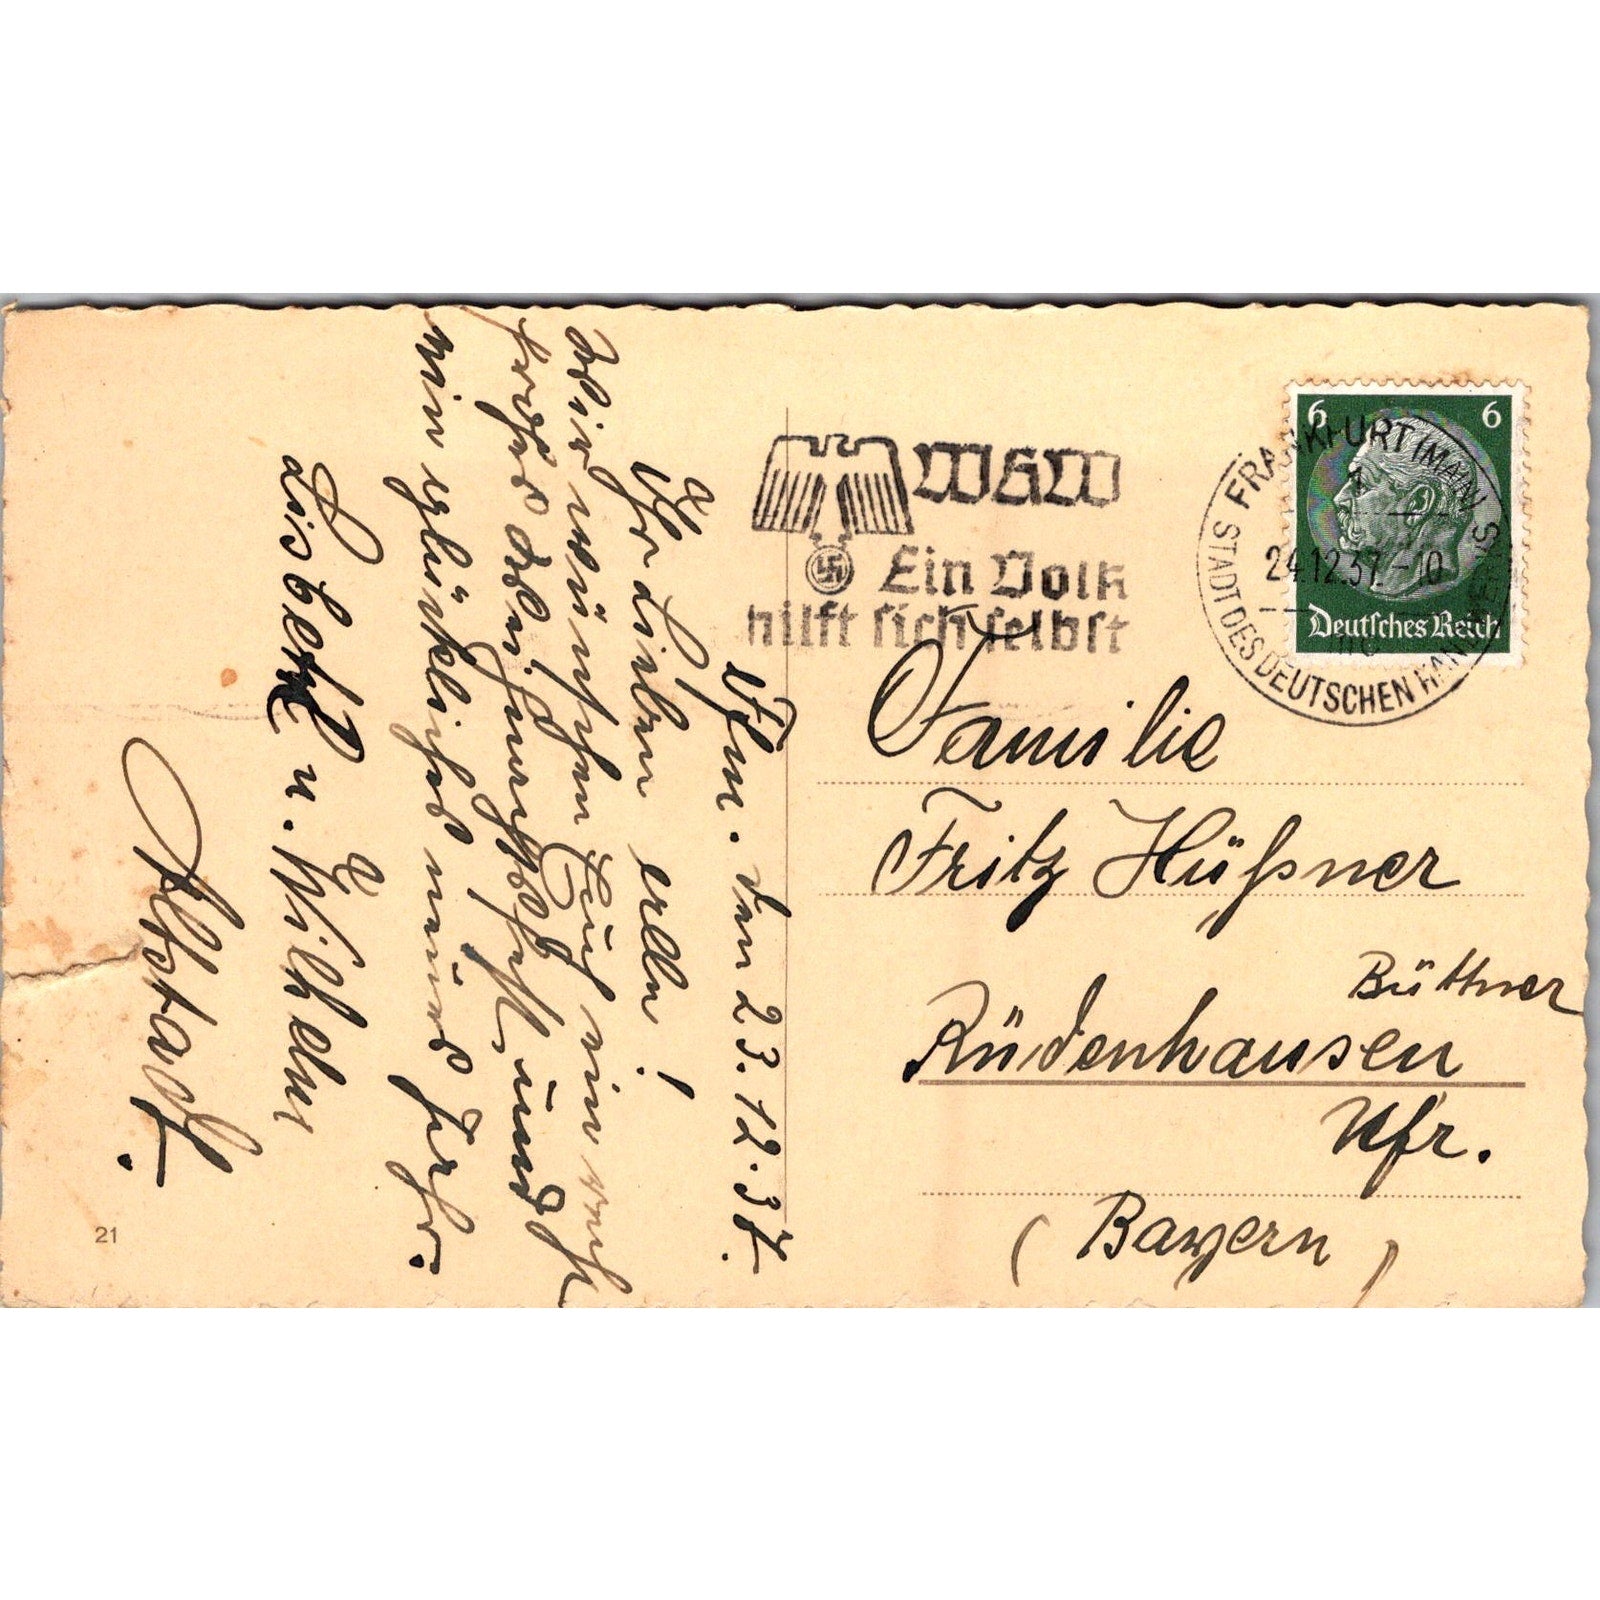 Ffm. den 23.12.37.
Ihr lieben alle!
Wir wünschen Euch ein recht
frohes Weihnachtsfest, und
ein glückliches neues Jahr.
Lisbeth u. Wilhelm
Altstadt.
21
WHW
Ein Volk
hilft sich selbst
FRANKFURT (MAIN)
24.12.37.-10
STADT DES DEUTSCHEN HANDWERKS
6 6
Deutsches Reich
Familie
Fritz Hüßner
Büttner
Rüdenhausen
Ufr.
(Bayern)